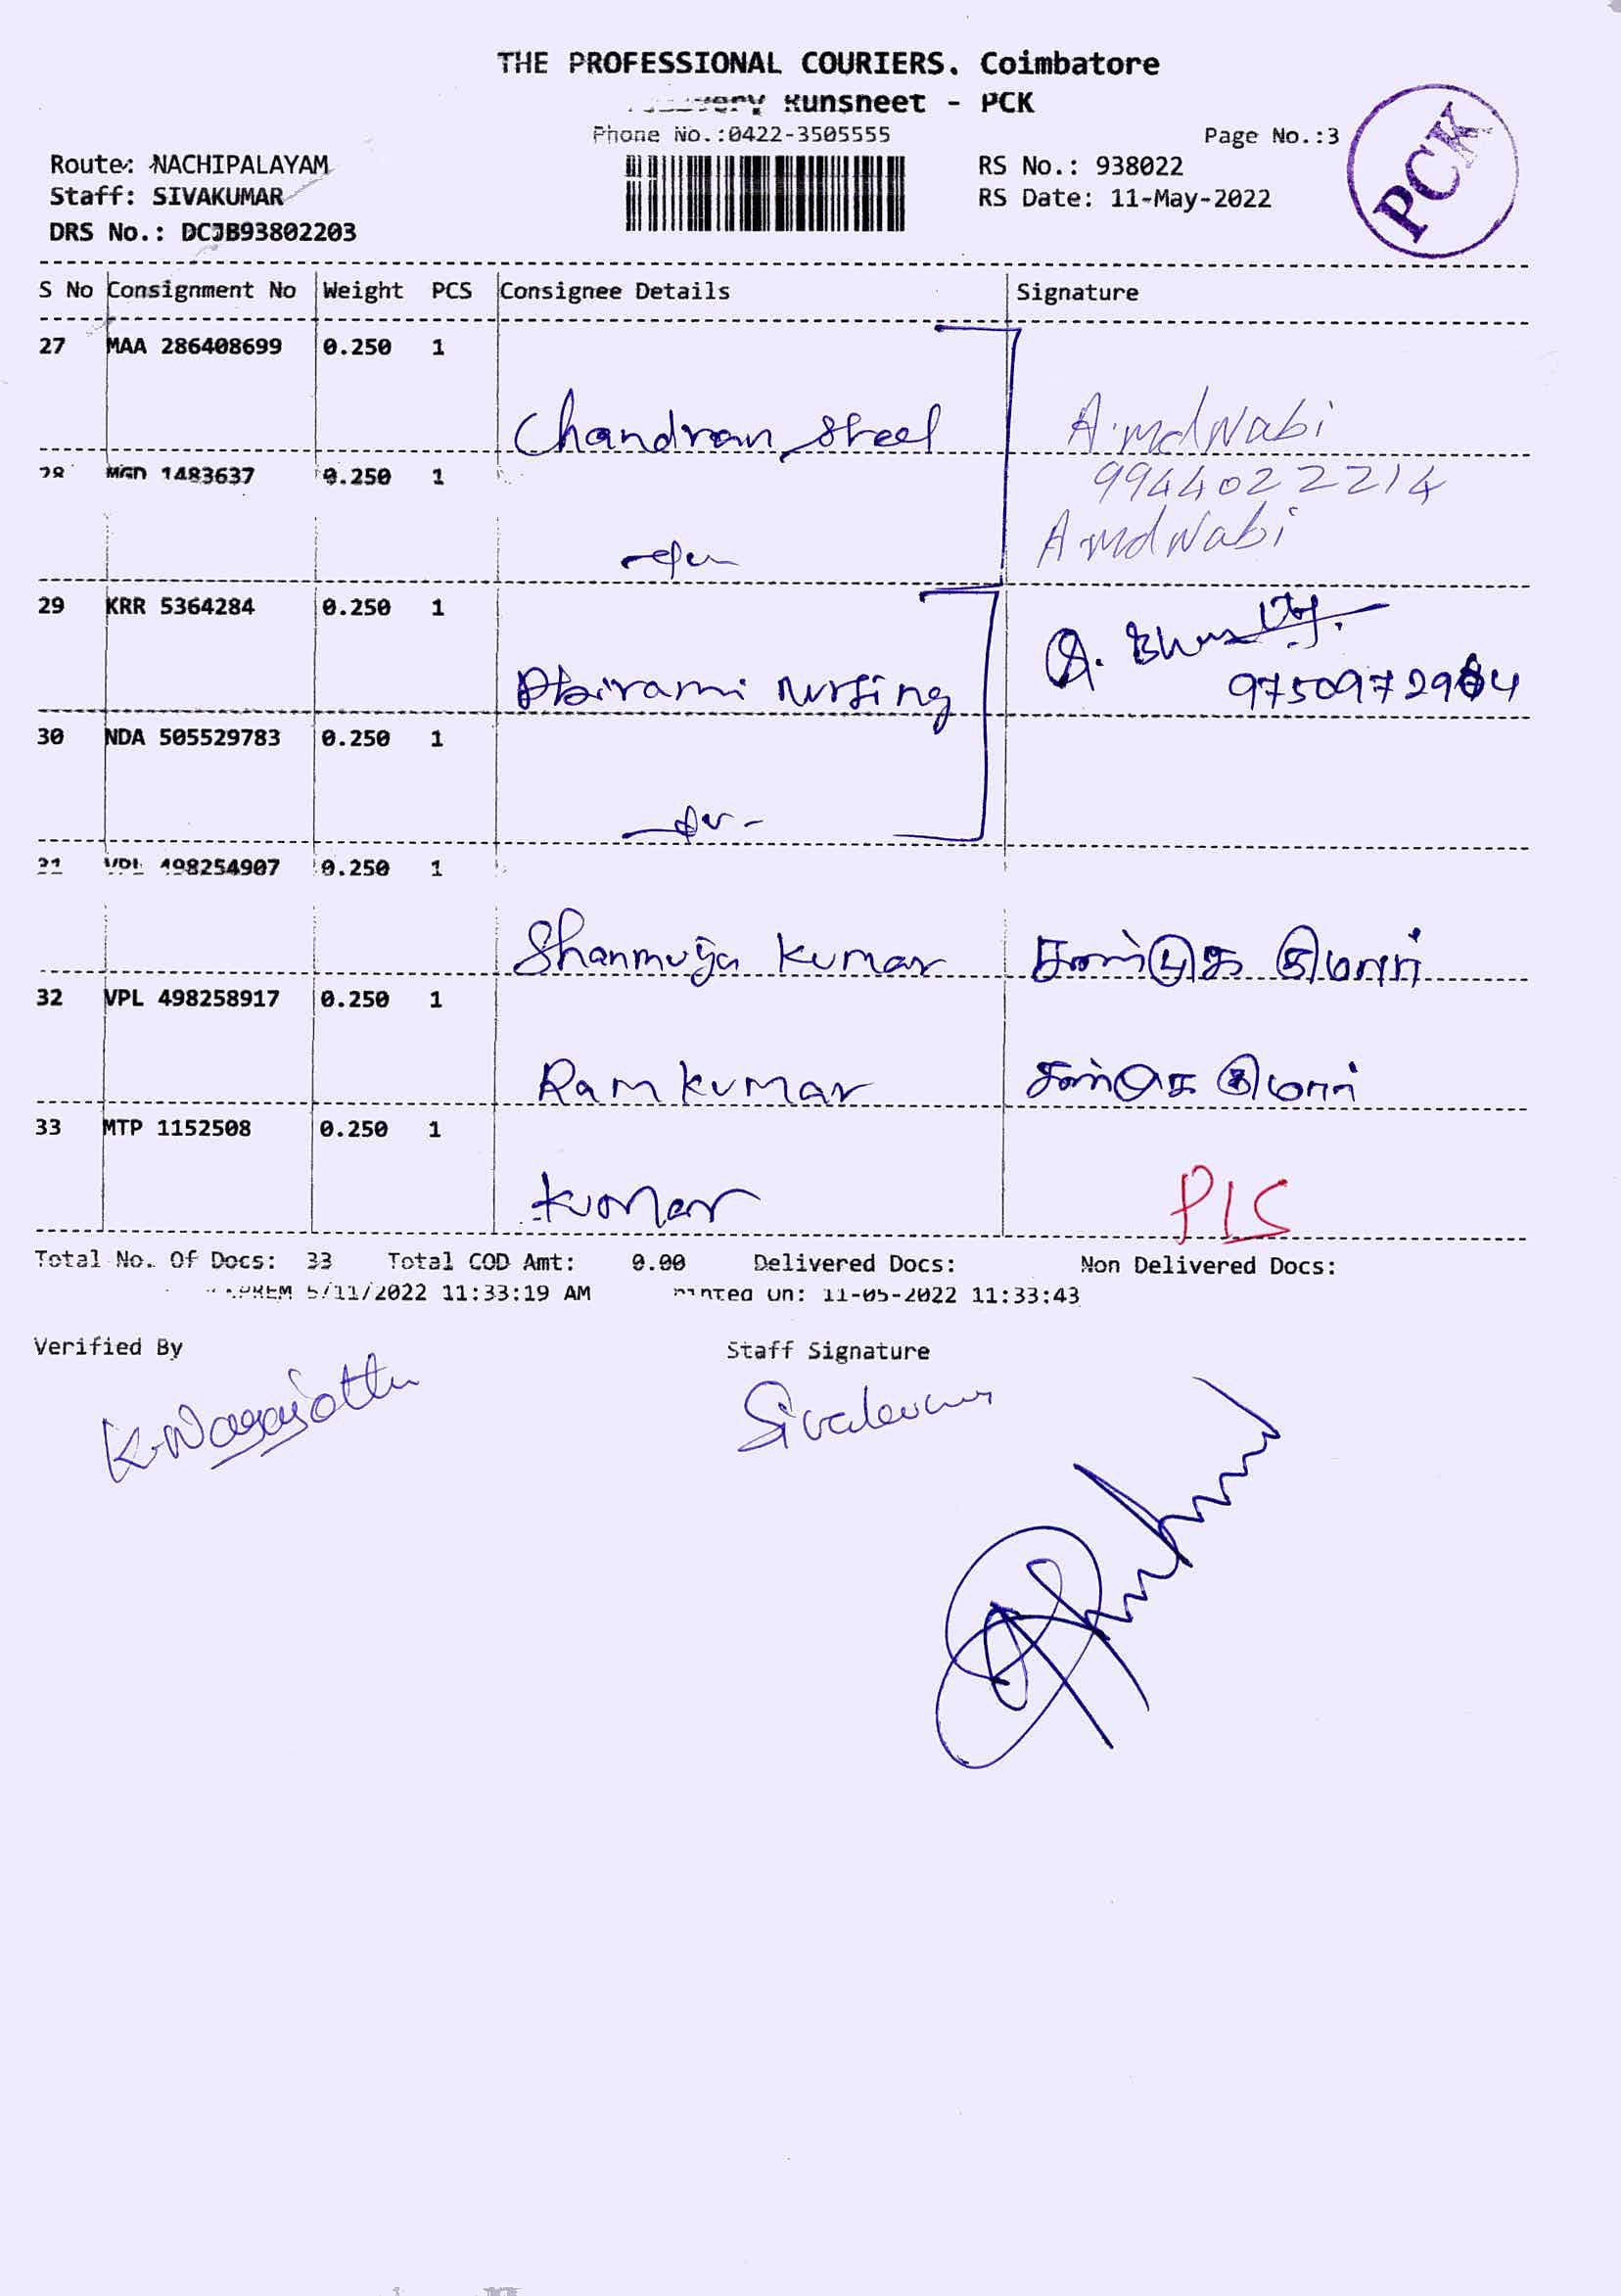 THE PROFESSIONAL COURIERS. Coimbatore
Runsheet - PCK
Phone No.:0422-3505555
Page No.:3
PCK
Route: NACHIPALAYAM
RS No.: 938022
Staff: SIVAKUMAR
RS Date: 11-May-2022
DRS No.: DCJB93802203
S No Consignment No Weight PCS Consignee Details Signature
27 MAA 286408699 0.250 1
Chandran Steel A.mdNabi
28 MGD 1483637 0.250 1
9944022214
A.mdNabi
29 KRR 5364284 0.250 1
Abirami Nursing
30 NDA 505529783 0.250 1
31 VPL 498254907 0.250 1
Shanmuga Kumar சண்முக குமார்
32 VPL 498258917 0.250 1
Ramkumar
33 MTP 1152508 0.250 1
Kumar PIS
Total No. Of Docs: 33 Total COD Amt: 0.00 Delivered Docs: Non Delivered Docs:
5/11/2022 11:33:19 AM Printed On: 11-05-2022 11:33:43
Verified By Staff Signature
Sivakumar